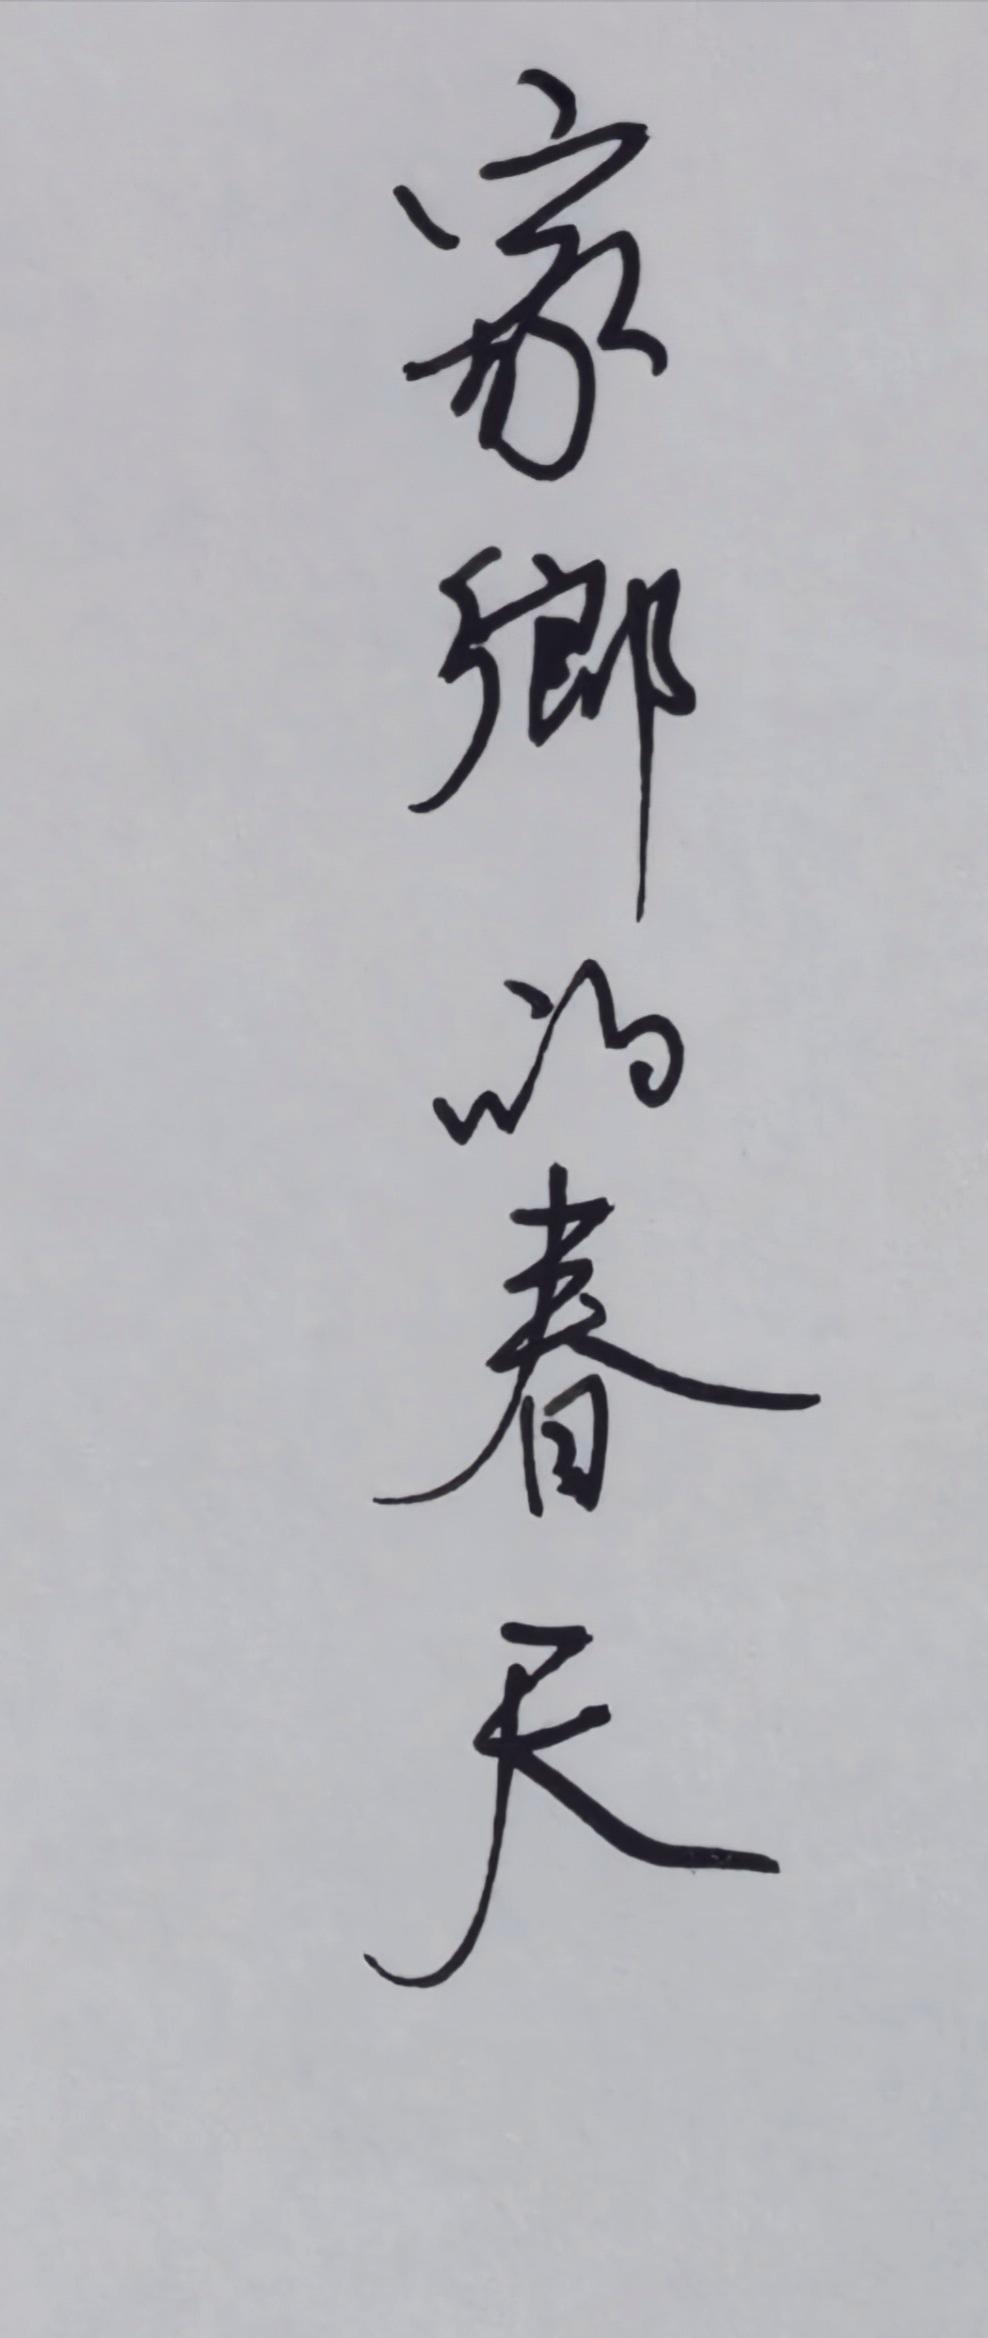 家鄉的春天